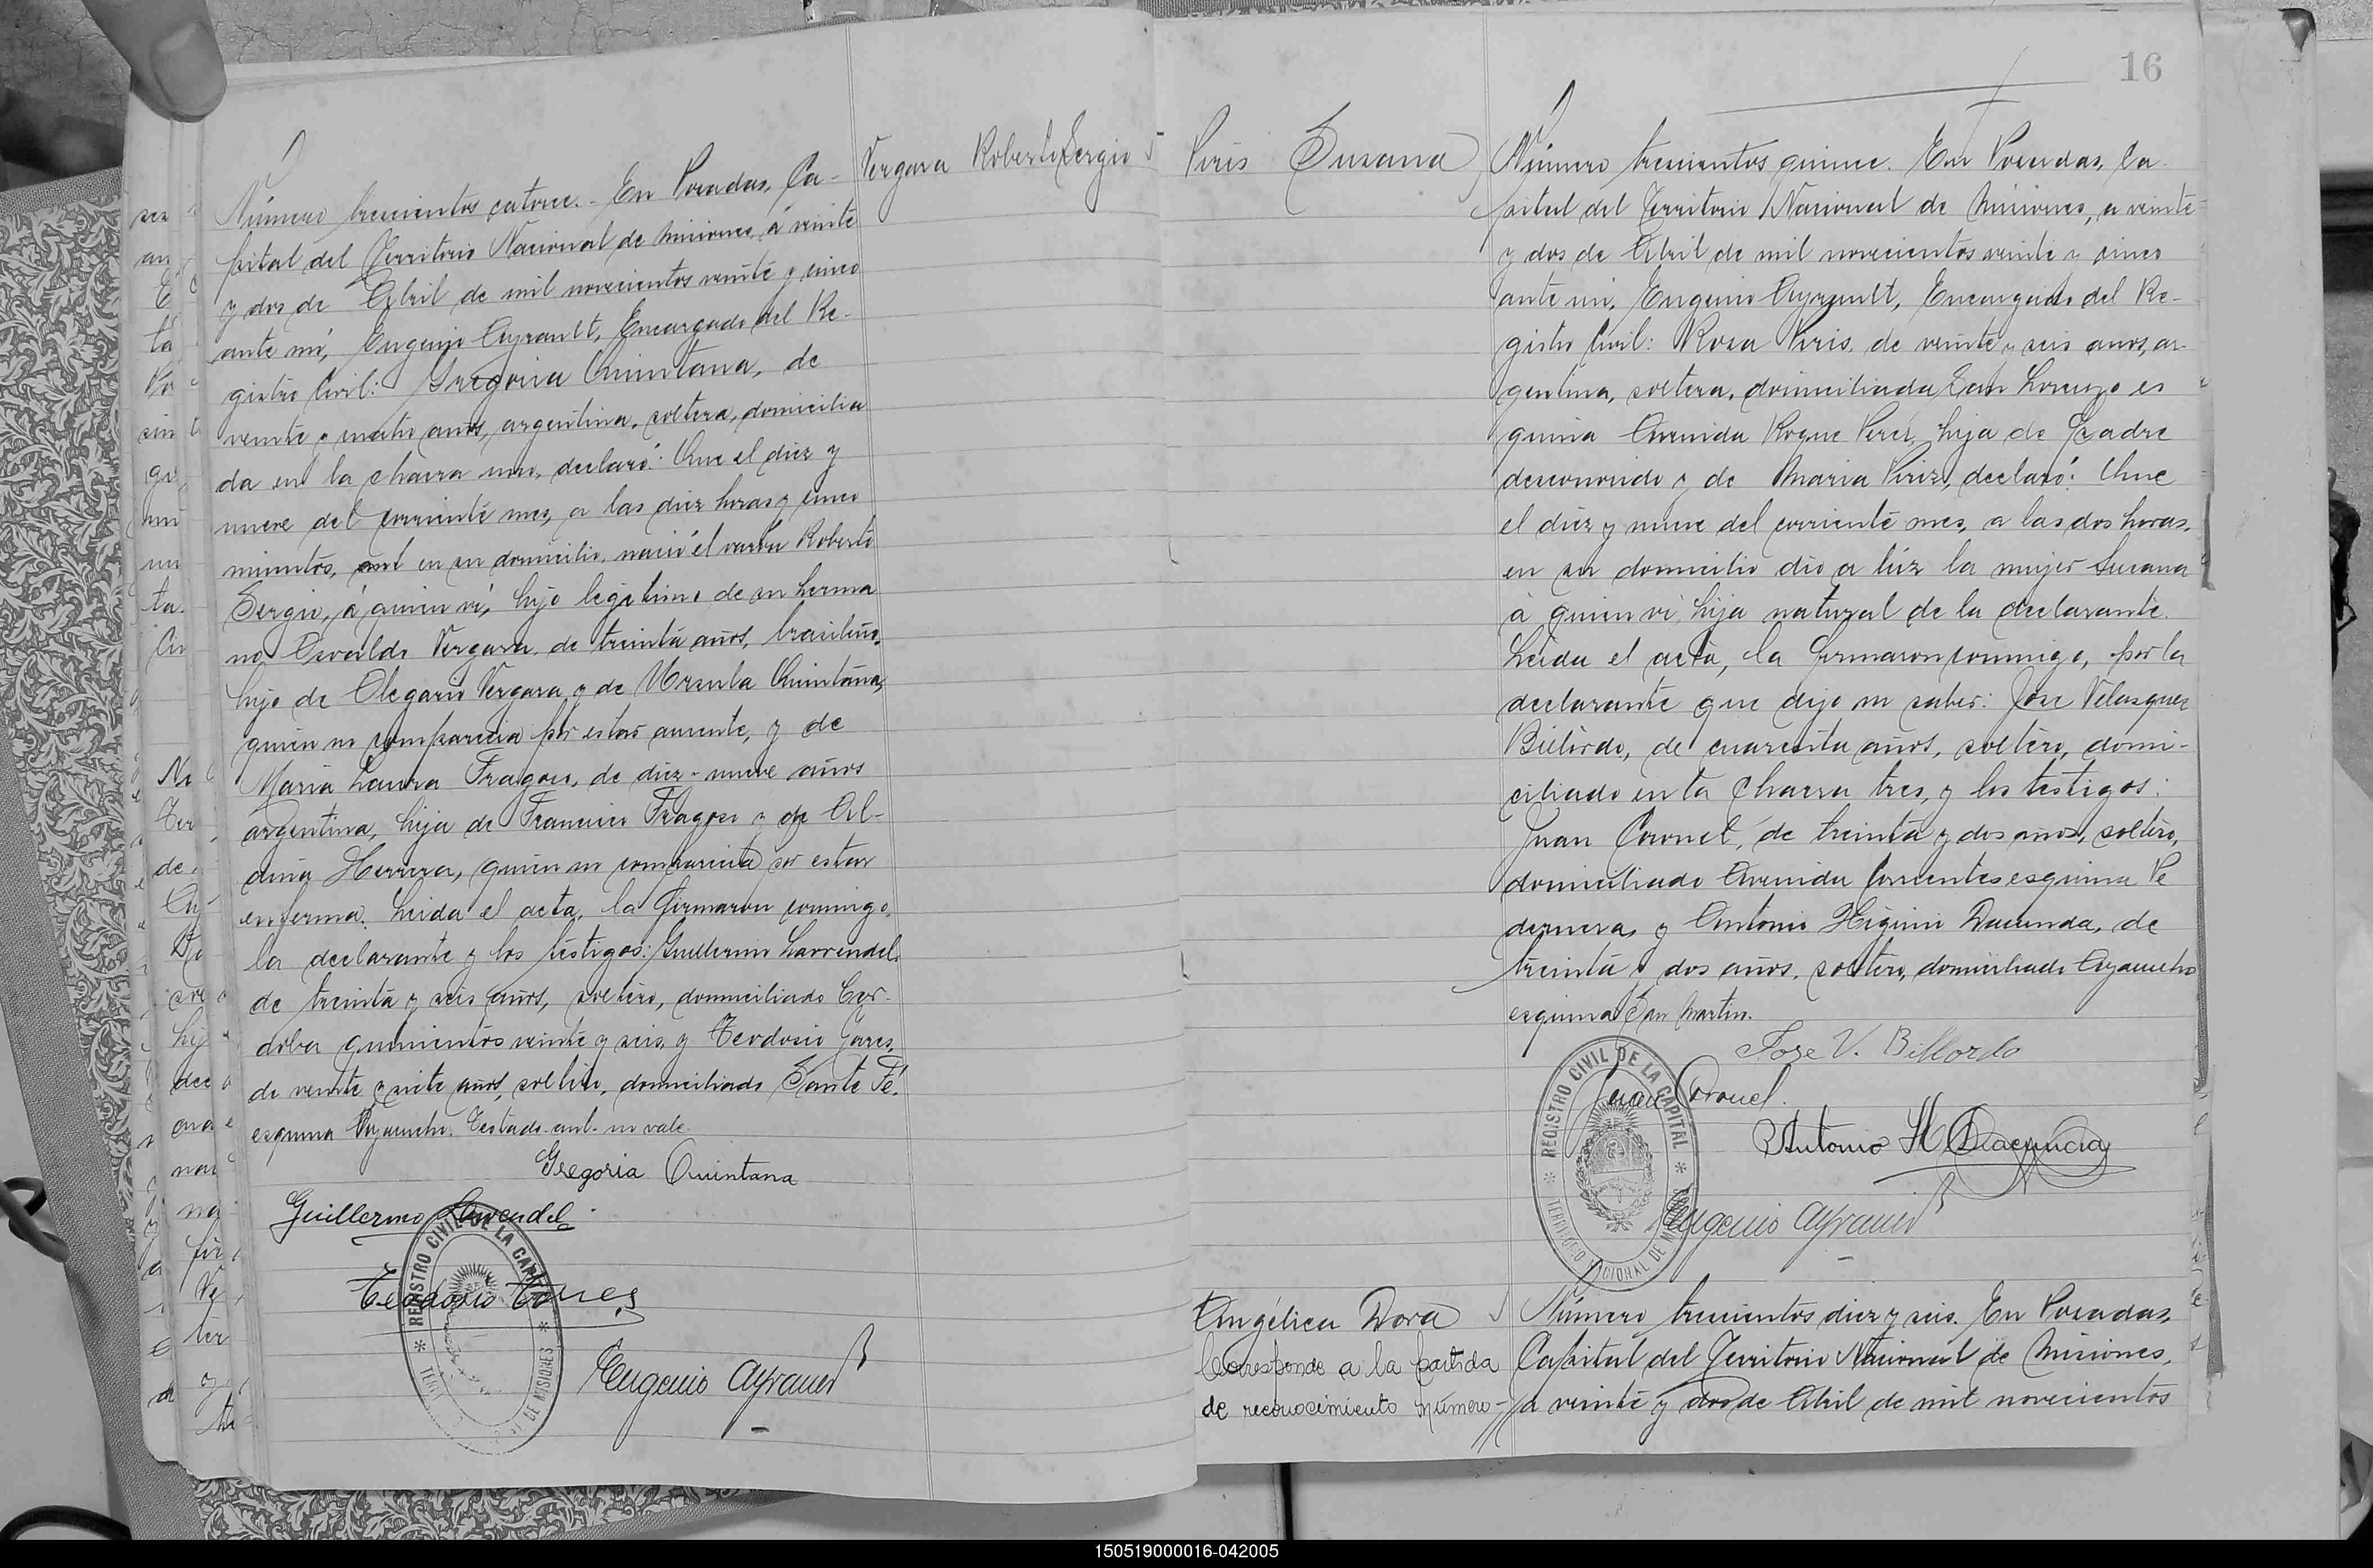 Vergara Roberto Sergio
Número trescientos catorce. - En Posadas, Ca-
pital del Territorio Nacional de Misiones, á veinte
y dos de Abril de mil novecientos veinte y cinco
ante mí, Eugenio Ayrault, Encargado del Re-
gistro Civil: Gregoria Quintana, de
veinte y cuatro años, argentina, soltera, domicilia
da en la chacra uno, declaró: Que el diez y
nueve del corriente mes, a las diez horas y cinco
minutos, ant en su domicilio, nació el varón Roberto
Sergio, á quien ví, hijo legítimo de su herma
no Osvaldo Vergara, de treinta años, brasileño,
hijo de Olegario Vergara y de Ursula Quintana,
quien no comparecia por estar ausente, y de
María Laura Fragoso, de diez y nueve años
argentina, hija de Francisco Fragoso y de
Herrera, quien no comparecia por estar
enferma. Leida el acta, la firmaron conmigo,
la declarante y los testigos: Guillermo Larrendel,
de treinta y seis años, soltero, domiciliado Cór-
doba quinientos veinte y seis, y Teodosio
de veinte y siete años, soltero, domiciliado Santa Fé,
esquina Ayacucho. Testado-ant-no vale.
Gregoria Quintana
Guillermo Larrendel
Teodosio Torres
Eugenio Ayrault
REGISTRO CIVIL DE LA CAPITAL
DE MISIONES
16
Piris Susana
Número trescientos quince. En Posadas, Ca
pital del Territorio Nacional de Misiones, a veinte
y dos de Abril de mil novecientos veinte y cinco
ante mi, Eugenio Ayrault, Encargado del Re-
gistro Civil: Rosa Piris, de veinte y seis años, ar-
gentina, soltera, domiciliada San Lorenzo es
quina Avenida Roque Perez, hija de Padre
desconocido y de Maria Piriz, declaró: Que
el diez y nueve del corriente mes, a las dos horas,
en su domicilio dio a lúz la mujer Susana
á quien ví, hija natural de la declarante.
Leida el acta, la firmaron conmigo, por la
declarante que dijo no saber: Jose Velasquez
Billordo, de cuarenta años, soltero, domi-
ciliado en la Chacra tres, y los testigos:
Juan Coronel, de treinta y dos años, soltero,
domiciliado Avenida Corrientes esquina Pe
dernera, y Antonio Higinio Dacunda, de
treinta y dos años, soltero, domiciliado Ayacucho
esquina San Martin.
Jose V. Billordo
Juan Coronel.
Antonio H Dacunda
Eugenio Ayrault
REGISTRO CIVIL DE LA CAPITAL
TERRITORIO NACIONAL DE MISIONES
Angélica Dora
Corresponde a la partida
de reconocimiento número-
Número trescientos diez y seis. En Posadas,
Capital del Territorio Nacional de Misiones,
a veinte y dos de Abril de mil novecientos
150519000016-042005